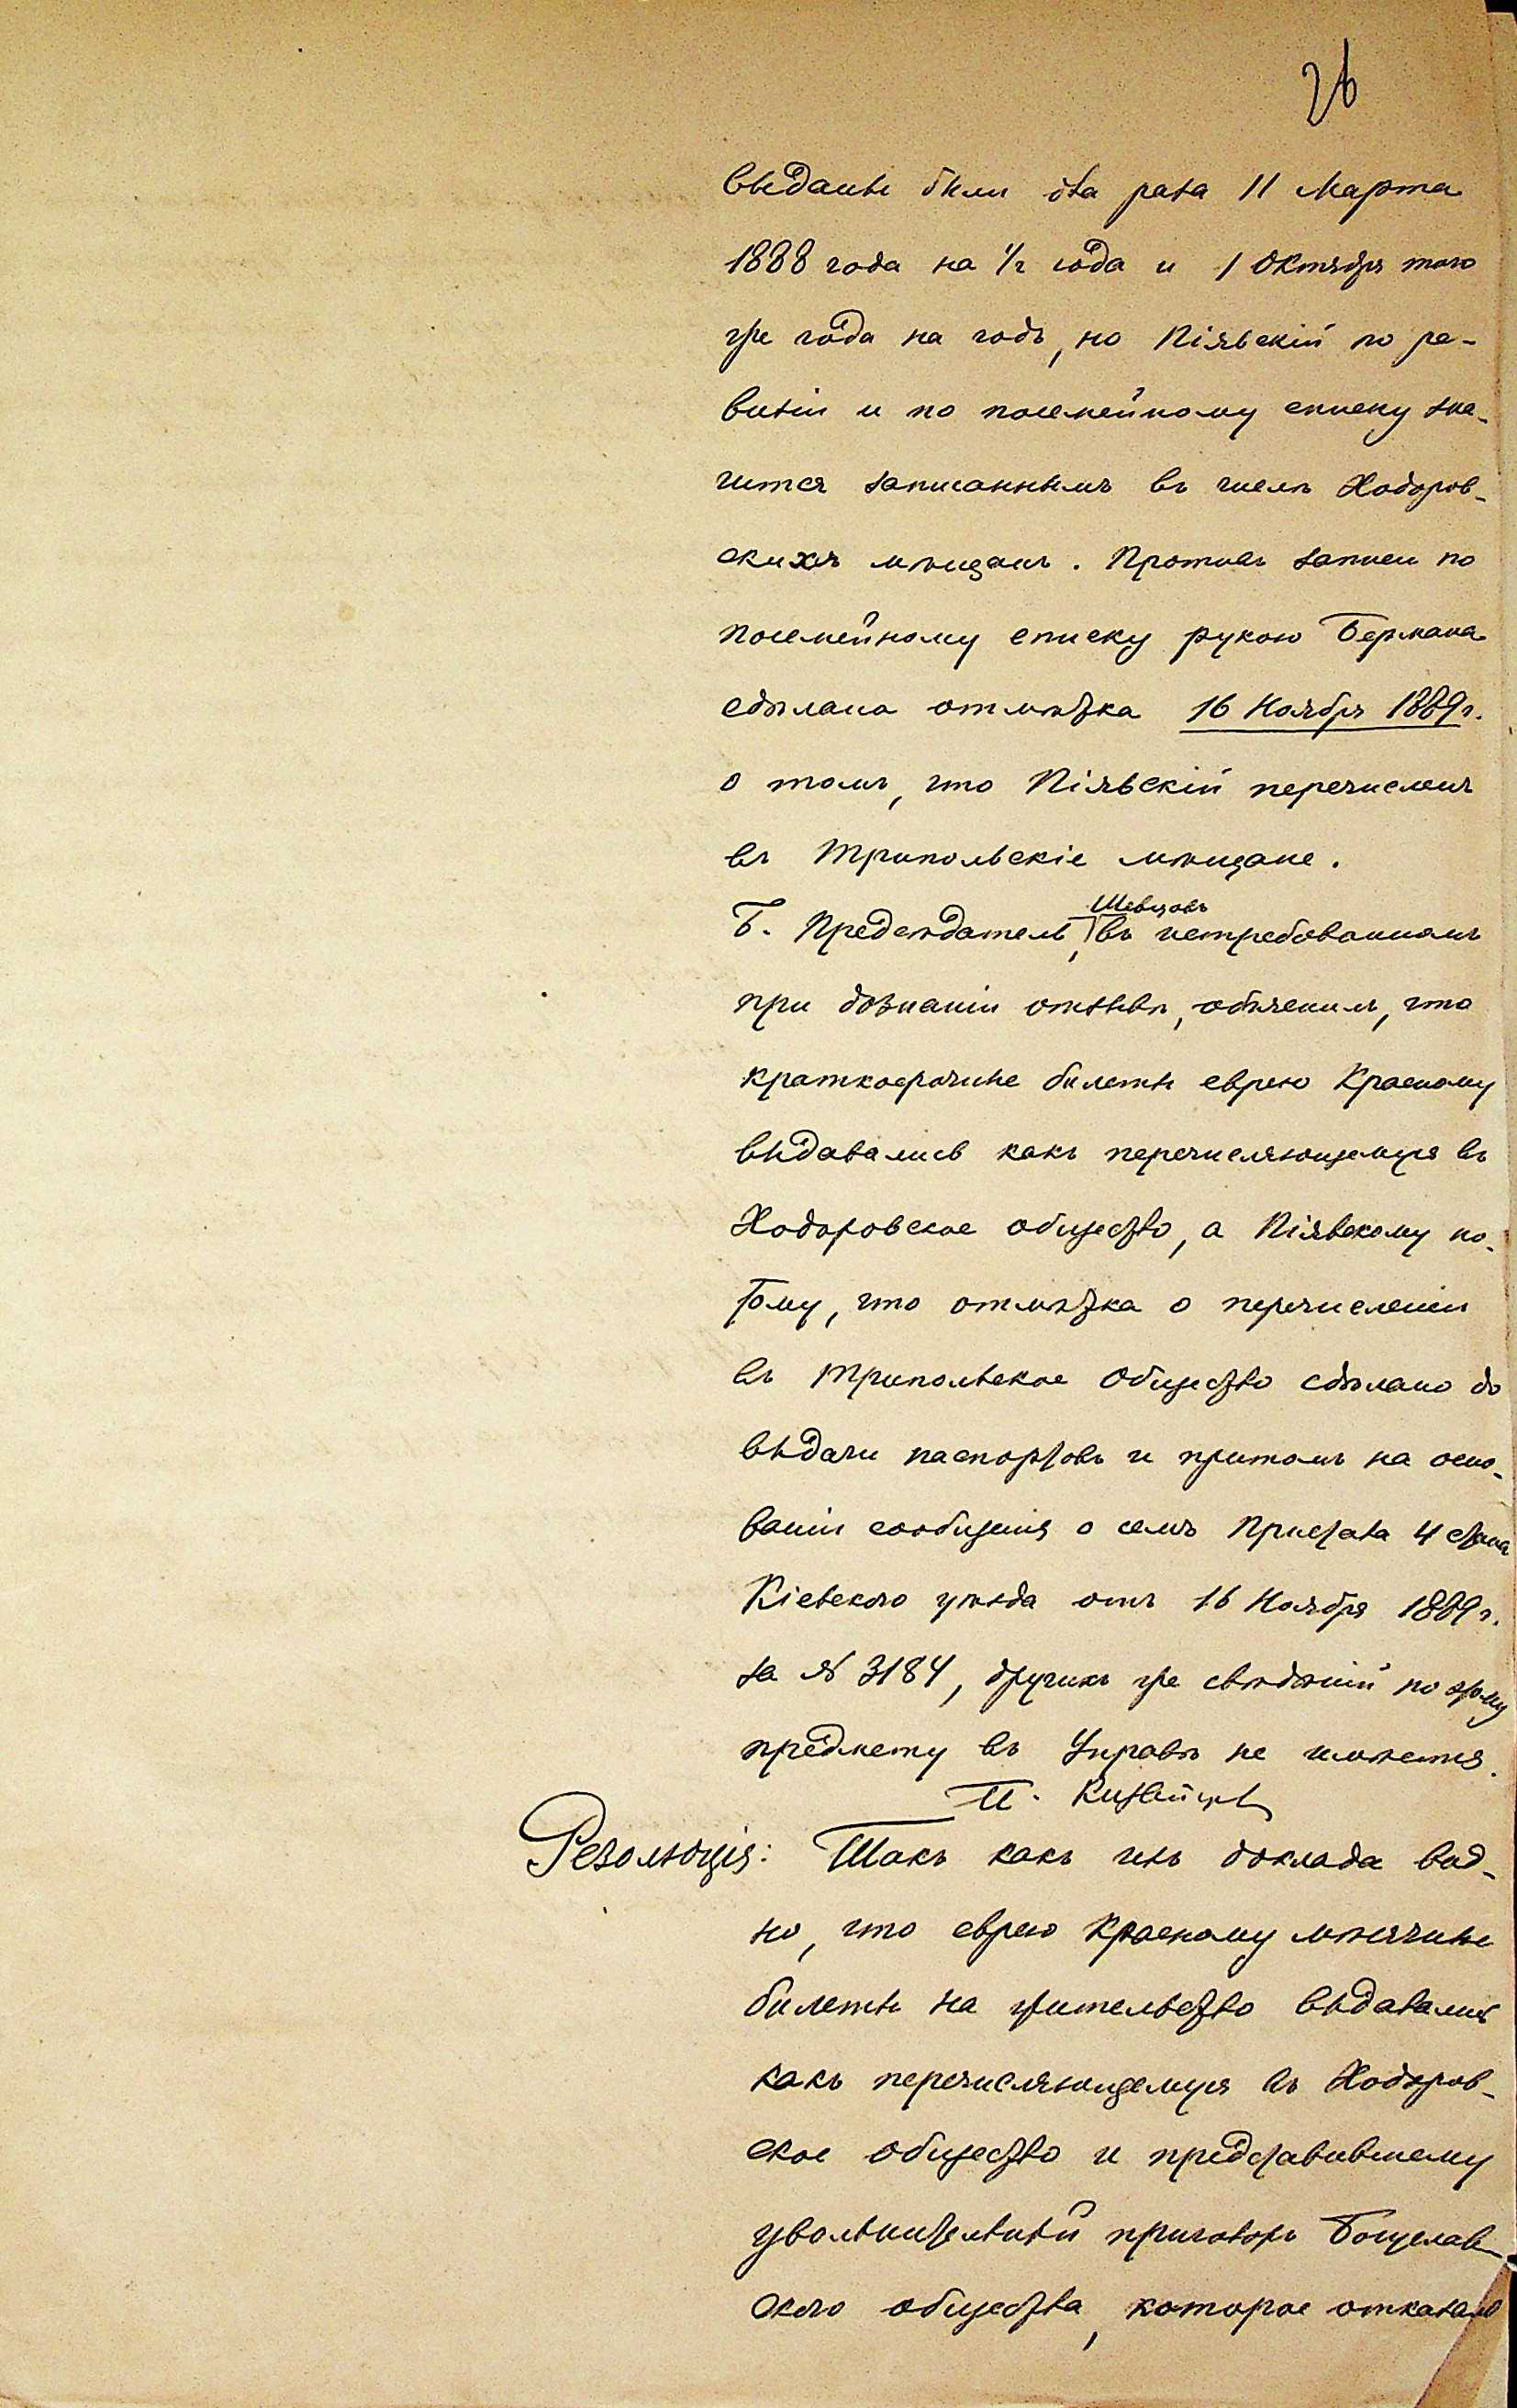 26
выданы были два раза 11 Марта
1888 года на 1/2 года и 1 Октября того
же года на годъ, но Піявскій по ре-
визіи и по посемейному списку зна-
чится записаннымъ въ числѣ Ходоров-
скихъ мѣщанъ. Противъ записи по
посемейному списку рукою Бермана
сдѣлана отмѣтка 16 Ноября 1889 г.
о томъ, что Піявскій перечисленъ
въ Трипольскіе мѣщане.
Б. Предсѣдатель, Шевцовъ въ истребованномъ
при дознаніи отзывѣ, объяснилъ, что
краткосрочные билеты еврею Красному
выдавались какъ перечисляющемуся въ
Ходоровское общество, а Піявскому по-
тому, что отмѣтка о перечисленіи
въ Трипольское Общество сдѣлано до
выдачи паспортовъ и притомъ на осно-
ваніи сообщенія о семъ Пристава 4 стана
Кіевского уѣзда отъ 16 Ноября 1889 г.
за № 3184, другихъ же свѣдѣній по этому
предмету въ Управѣ не имѣется.
Резолюція: Такъ какъ изъ доклада вид-
но, что еврею Красному мѣсячные
билеты на жительство выдавались
какъ перечисляющемуся въ Ходоров-
ское общество и представившему
увольнительный приговоръ Богуслав-
ского общества, которое отказало